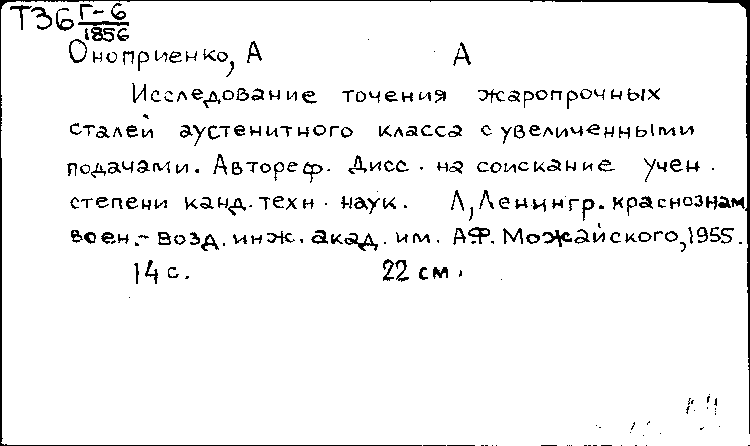 Т36 Г-6
1856
Оноприенко, А А
Исследование точения жаропрочных
сталей аустенитного класса с увеличенными
подачами. Автореф. Дисс. на соискание учен.
степени канд. техн. наук. Л, Ленингр. краснознам.
воен.- возд. инж. акад. им. А.Ф. Можайского, 1955.
14 с. 22 см.